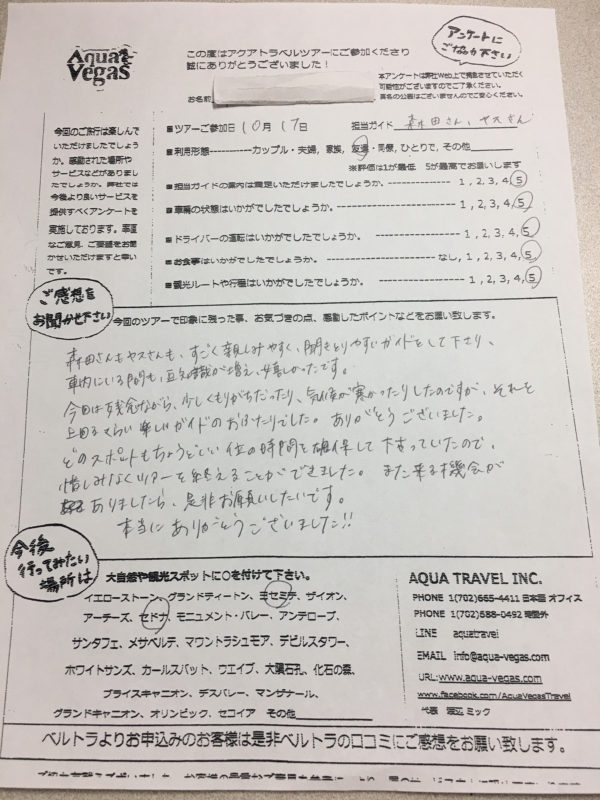 Aqua Vegas
この度はアクアトラベルツアーにご参加くださり
誠にありがとうございました！
アンケートに
ご協力下さい
お名前
本アンケートは弊社Web上で掲載させていただく
可能性がございますのでご了承ください。
実名の公表はございませんのでご安心ください。
今回のご旅行は楽しんで
いただけましたでしょう
か。感動された場所や
サービスなどがありまし
たでしょうか。弊社では
今後より良いサービスを
提供すべくアンケートを
実施しております。率直
なご意見、ご要望をお聞
かせいただけますと幸い
です。
■ツアーご参加日 10月 17日 担当ガイド 森田さん、ヤスさん
■利用形態-----------カップル・夫婦, 家族, 友達・同僚, ひとりで, その他
※評価は1が最低 5が最高でお願いします
■担当ガイドの案内は満足いただけましたでしょうか。------------ 1, 2, 3, 4, 5
■車輌の状態はいかがでしたでしょうか。-------------------- 1, 2, 3, 4, 5
■ドライバーの運転はいかがでしたでしょうか。 ---------------- 1, 2, 3, 4, 5
■お食事はいかがでしたでしょうか。 ---------------- なし, 1, 2, 3, 4, 5
■観光ルートや行程はいかがでしたでしょうか。 ---------------- 1, 2, 3, 4, 5
ご感想を
お聞かせ下さい
今回のツアーで印象に残った事、お気づきの点、感動したポイントなどをお願い致します。
森田さんもヤスさんも、すごく親しみやすく、聞きとりやすいガイドをして下さり、
車内にいる間も、豆知識が増え、嬉しかったです。
今回は残念ながら、少しくもりがちだったり、気候が寒かったりしたのですが、それを
上回るくらい楽しいガイドのおふたりでした。ありがとうございました。
どのスポットもちょうどいい位の時間を確保して下さっていたので、
惜しみなくツアーを終えることができました。また来る機会が
ありましたら、是非お願いしたいです。
本当にありがとうございました!!
今後
行ってみたい
場所は
大自然や観光スポットに○を付けて下さい。
イエローストーン、グランドティートン、ヨセミテ、ザイオン、
アーチーズ、セドナ、モニュメント・バレー、アンテロープ、
サンタフェ、メサベルデ、マウントラシュモア、デビルスタワー、
ホワイトサンズ、カールスバット、ウエイブ、大隕石孔、化石の森、
ブライスキャニオン、デスバレー、マンザナール、
グランドキャニオン、オリンピック、セコイア その他
AQUA TRAVEL INC.
PHONE 1(702)665-4411 日本語 オフィス
PHONE 1(702)588-0492 時間外
LINE aquatravel
EMAIL info@aqua-vegas.com
URL:www.aqua-vegas.com
www.facebook.com/AquaVegasTravel
代表 渡辺 ミック
ベルトラよりお申込みのお客様は是非ベルトラの口コミにご感想をお願い致します。